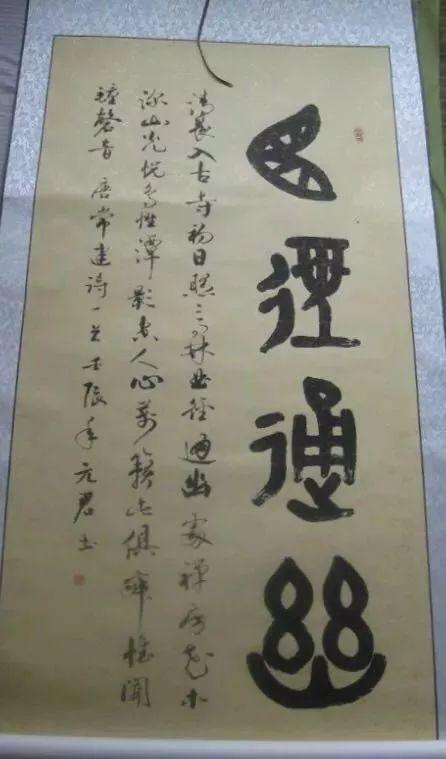 曲徑通幽
清晨入古寺初日照高林曲径通幽處禪房花木
深山光悦鳥性潭影空人心萬籟此俱寂惟聞
鐘磬音 唐常建诗一首 壬辰年元君书